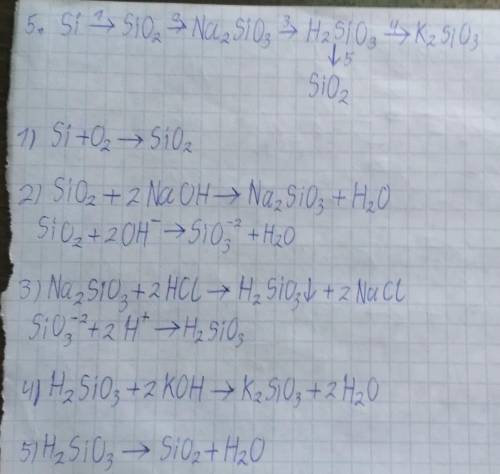 5. Si →1 SiO₂ →2 Na₂SiO₃ →3 H₂SiO₃ →4 K₂SiO₃
↓5
SiO₂
1) Si + O₂ → SiO₂
2) SiO₂ + 2NaOH → Na₂SiO₃ + H₂O
SiO₂ + 2OH⁻ → SiO₃⁻² + H₂O
3) Na₂SiO₃ + 2HCl → H₂SiO₃↓ + 2NaCl
SiO₃⁻² + 2H⁺ → H₂SiO₃
4) H₂SiO₃ + 2KOH → K₂SiO₃ + 2H₂O
5) H₂SiO₃ → SiO₂ + H₂O